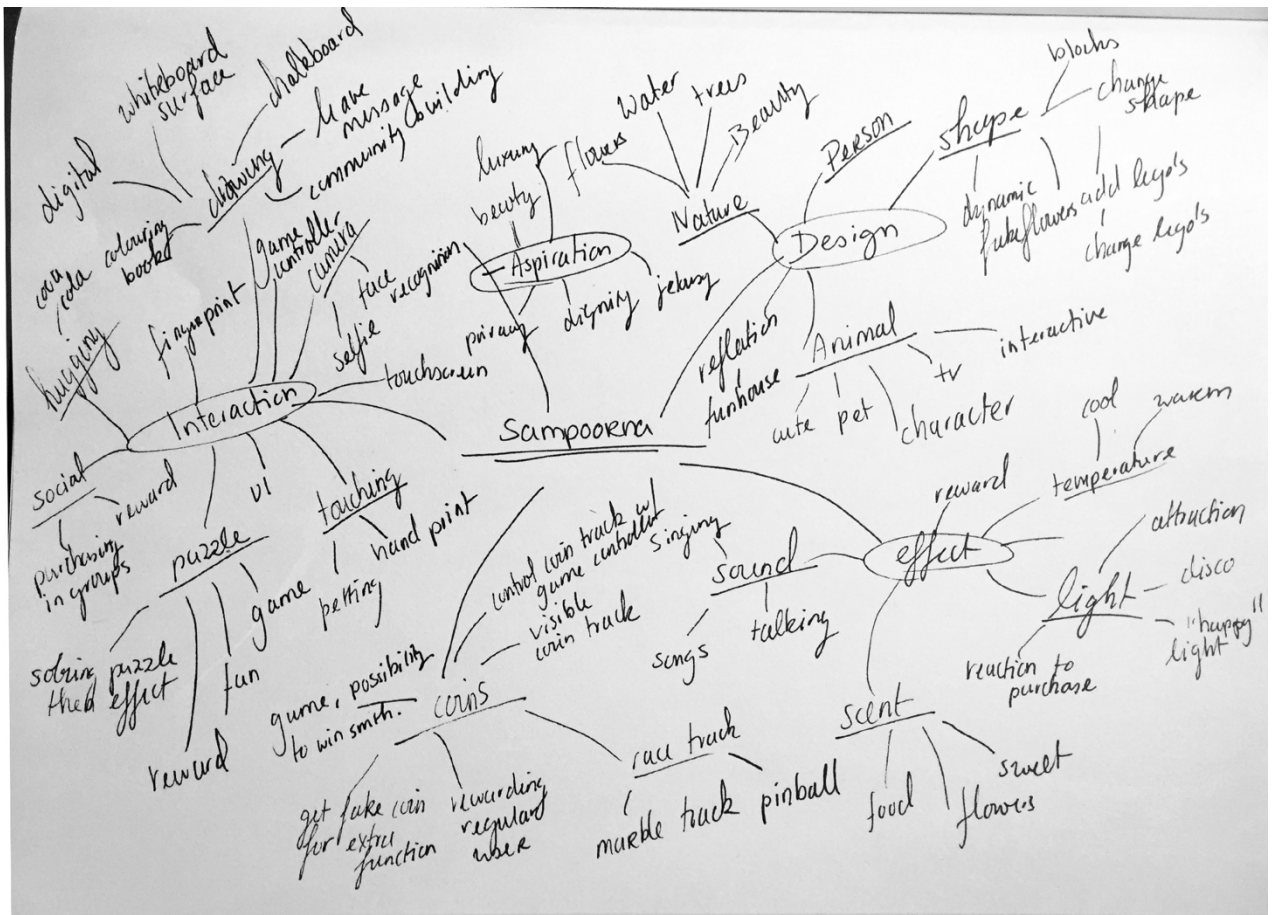 whiteboard
surface
chalkboard
leave
message
community building
drawing
digital
colouring
book
coca
cola
hugging
fingerprint
game
controller
camera
face
recognition
selfie
touchscreen
Interaction
social
reward
purchasing
in groups
puzzle
UI
touching
hand print
petting
game
fun
reward
solving puzzle
effect
luxury
beauty
Aspiration
privacy
dignity
jelousy
flowers
water
trees
Beauty
Nature
Person
Design
shape
blocks
change
shape
dynamic
fake flowers
add lego's
change lego's
reflation
funhouse
Animal
cute
pet
character
tv
interactive
Sampoorna
effect
reward
temperature
cool
warm
light
attraction
disco
"happy"
light
reaction to
purchase
sound
singing
talking
songs
scent
food
flowers
sweet
coins
control coin track w/
game controller
visible
coin track
game, possibility
to win smth.
get fake coin
for extra
function
rewarding
regular
user
race track
marble track
pinball